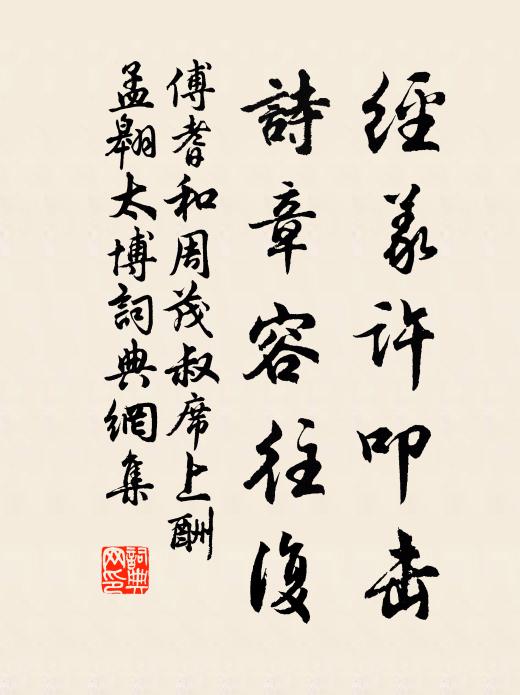 經義許叩击
詩章容往復
傅耆和周茂叔席上酬
孟翱太博詞典網集
詞典網印